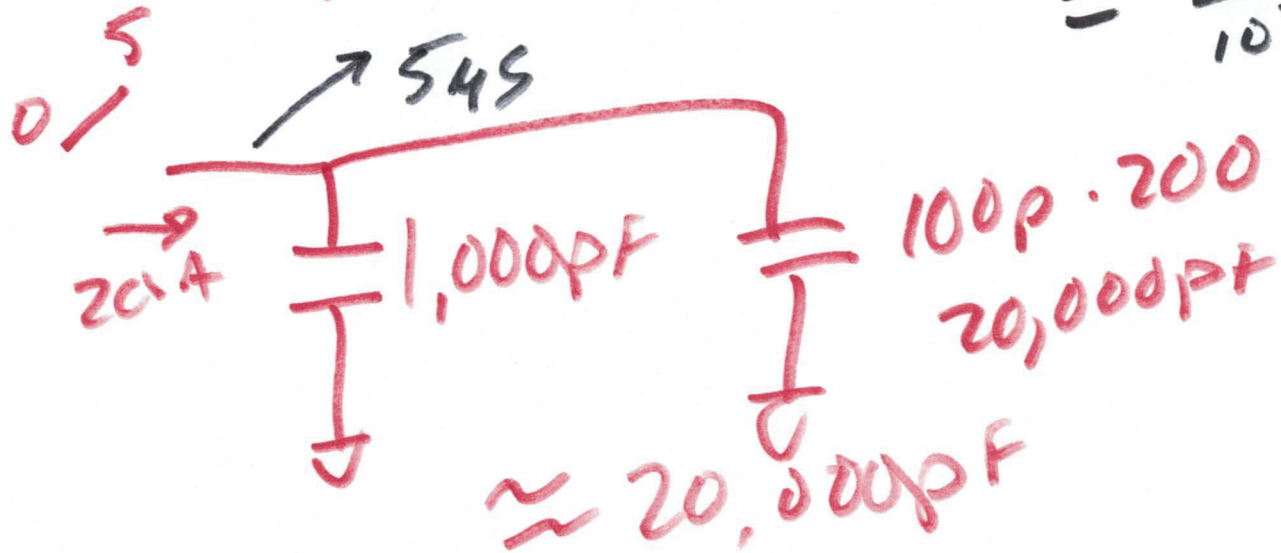 5
0
5µs
10
20mA
1,000pF
100p · 200
20,000pF
≅ 20,000pF